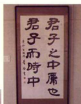 君子之中庸也
君子而時中